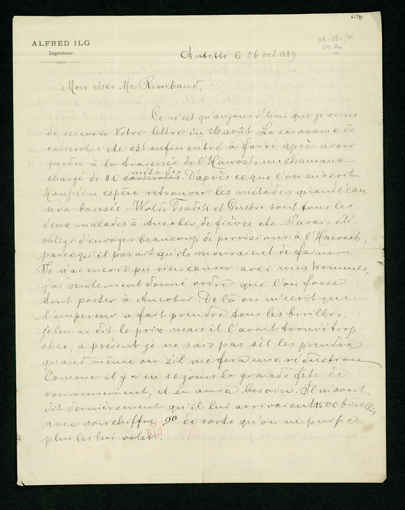 ALFRED ILG
Ingénieur
Antotto le 26 oct 1889
Mon cher Mr. Rimbaud,
Ce n'est qu'aujourd'hui que je viens
de recevoir votre lettre du 26 août. La caravane de
casseroles etc est enfin entré à Farré après avoir
perdu à la traversée de l'Hawash un chameau
chargé de 80 métades. D'après ce que l'on m'écrit
espère retrouver les métades quand l'eau
sera baissée. Wolde Tsadik et Guebre sont tous les
deux malades à Ancober, de fièvre etc. J'avais été
obligé d'envoyer beaucoup de provisions à l'Hawash,
parce qu'il parait qu'ils mouraient de faim.
Je n'ai encore pu rien causer avec mes hommes,
j'ai seulement donné ordre que l'on fasse
tout porter à Ancober. De là on m'écrit que
l'empereur a fait prendre tous les birilles,
je lui ai dit le prix mais il l'avait trouvé trop
cher, à présent je ne sais pas s'il les prendra
quand même ou s'il me fera une réduction.
Comme il y a en 10 jours la grande fête de
couronnement, il en aura besoin. Il m'avait
dit dernièrement qu'il lui arrivaient 1500 birilles
avec son chiffre, de sorte qu'on ne puisse
plus les lui voler.